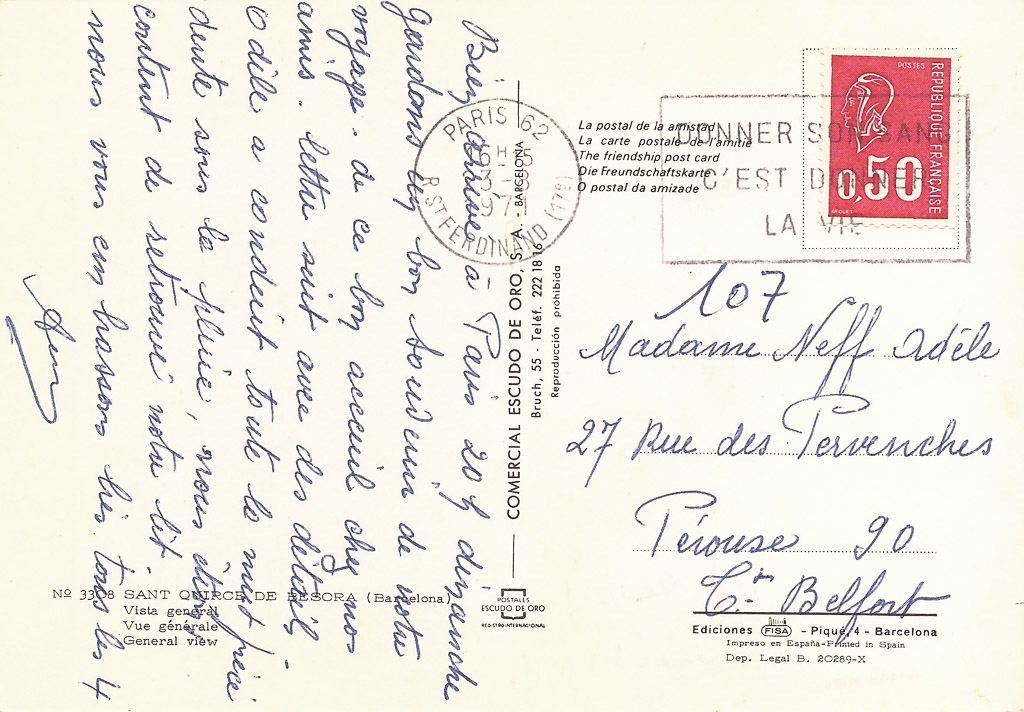 Bien arrivé à Paris 20h dimanche
gardons un bon souvenir de notre
voyage. de ce bon accueil chez nos
amis. lettre suit avec des détails.
Odile a conduit toute la nuit précé
dente sous la pluie, nous étions
content de retrouvé notre lit.
nous vous embrassons très tous les 4
PARIS 62
16H15
R. ST FERDINAND (17e)
La postal de la amistad
La carte postale de l'amitié
The friendship post card
Die Freundschaftskarte
O postal da amizade
DONNER SON SANG
C'EST DONNER
LA VIE
POSTES
REPUBLIQUE FRANÇAISE
0,50
BEQUET
COMERCIAL ESCUDO DE ORO, S. A. - BARCELONA
Bruch, 55 - Teléf. 222 18 16
Reproducción prohibida
107
Madame Neff Adèle
27 Rue des Pervenches
Pérouse 90
Tre Belfort
Nº 3308 SANT QUIRCE DE BESORA (Barcelona)
Vista general
Vue générale
General view
POSTALES
ESCUDO DE ORO
REGISTRO INTERNACIONAL
Ediciones FISA - Piqué, 4 - Barcelona
Impreso en España-Printed in Spain
Dep. Legal B. 20289-X